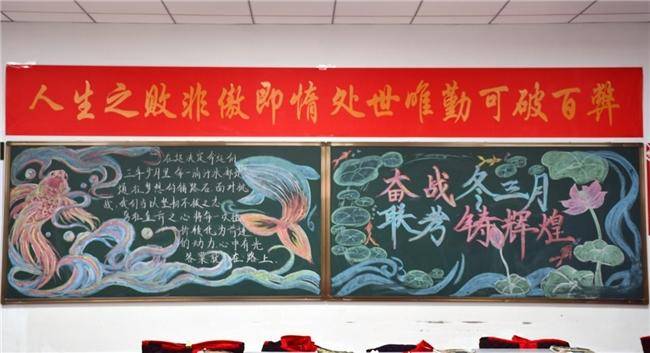 人生之败非傲即惰 处世唯勤可破百弊
在这决定命运的
三年岁月里每一滴汗水都是
通往梦想的铺路石，面对挑
战，我们当以坚韧不拔之志
勇往直前之心将每一次挫
折转化为前进
的动力，心中有光
答案就在路上.
奋战冬三月
联考铸辉煌